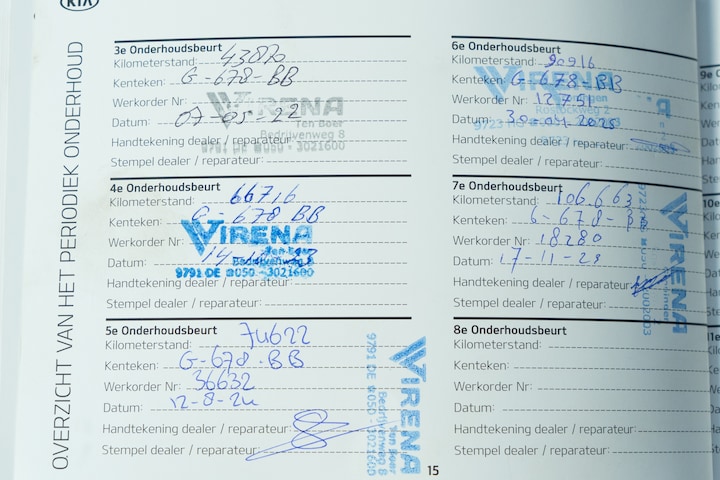 KIA
OVERZICHT VAN HET PERIODIEK ONDERHOUD
3e Onderhoudsbeurt
Kilometerstand: 43870
Kenteken: G-678-BB
Werkorder Nr:
VIRENA
Ten Boer
Datum: 07-05-22
Bedrijvenweg 8
9791 DE 050 - 3021600
Handtekening dealer / reparateur:
Stempel dealer / reparateur:
4e Onderhoudsbeurt
Kilometerstand: 66716
Kenteken: G-678 BB
VIRENA
Werkorder Nr:
Ten Boer
Datum:
Bedrijvenweg 8
9791 DE 050 - 3021600
Handtekening dealer / reparateur:
Stempel dealer / reparateur:
5e Onderhoudsbeurt
Kilometerstand: 74622
Kenteken: G-678-BB
Werkorder Nr: 36632
Datum: 12-8-24
Handtekening dealer / reparateur:
Stempel dealer / reparateur:
VIRENA
Ten Boer
Bedrijvenweg 8
9791 DE 050 - 3021600
6e Onderhoudsbeurt
Kilometerstand: 90916
Kenteken: G-678-BB
Werkorder Nr: 12751
Datum: 30-01-2025
Handtekening dealer / reparateur:
Stempel dealer / reparateur:
7e Onderhoudsbeurt
Kilometerstand: 106.663
Kenteken: G-678-BB
Werkorder Nr: 18280
Datum: 17-11-25
Handtekening dealer / reparateur:
Stempel dealer / reparateur:
VIRENA
8e Onderhoudsbeurt
Kilometerstand:
Kenteken:
Werkorder Nr:
Datum:
Handtekening dealer / reparateur:
Stempel dealer / reparateur:
15
9e O
Kilo
10e